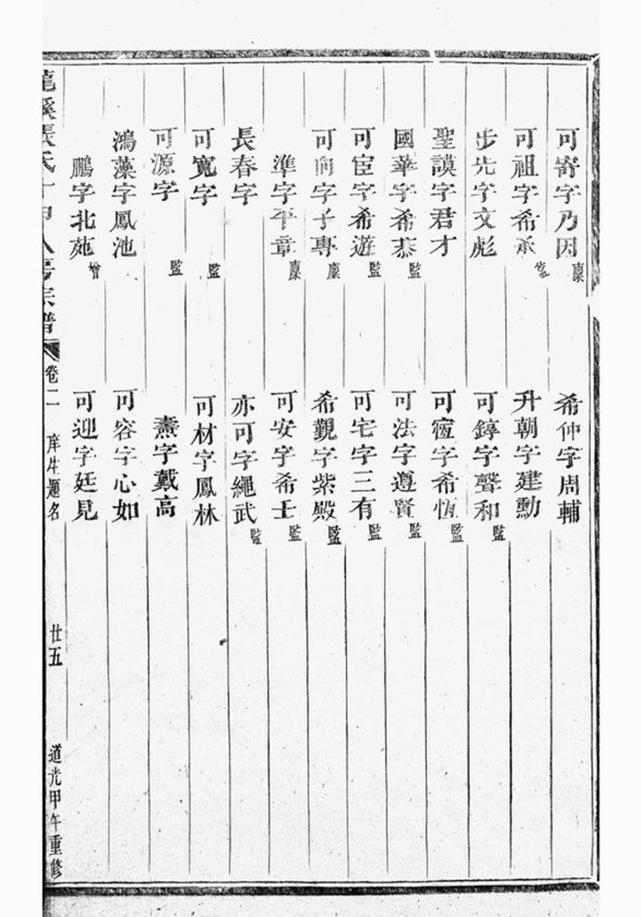 可寄字乃因 廩
希仲字周輔
可祖字希承
升朝字建勳
步先字文彪
可錞字聲和 監
聖謨字君才
可恆字希恆 監
國華字希恭 監
可法字遵賢 監
可宦字希遊 監
可宅字三有 監
可前字子專 廩
希覲字紫殿 監
準字平章 廩
可安字希壬 監
長春字
亦可字繩武 監
可寬字 監
可材字鳳林
可源字 監
燾字戴高
鴻藻字鳳池
可容字心如
鵬字北苑 增
可迎字廷見
龍溪張氏十甲八房宗譜 卷二 庠生題名 廿五 道光甲午重修